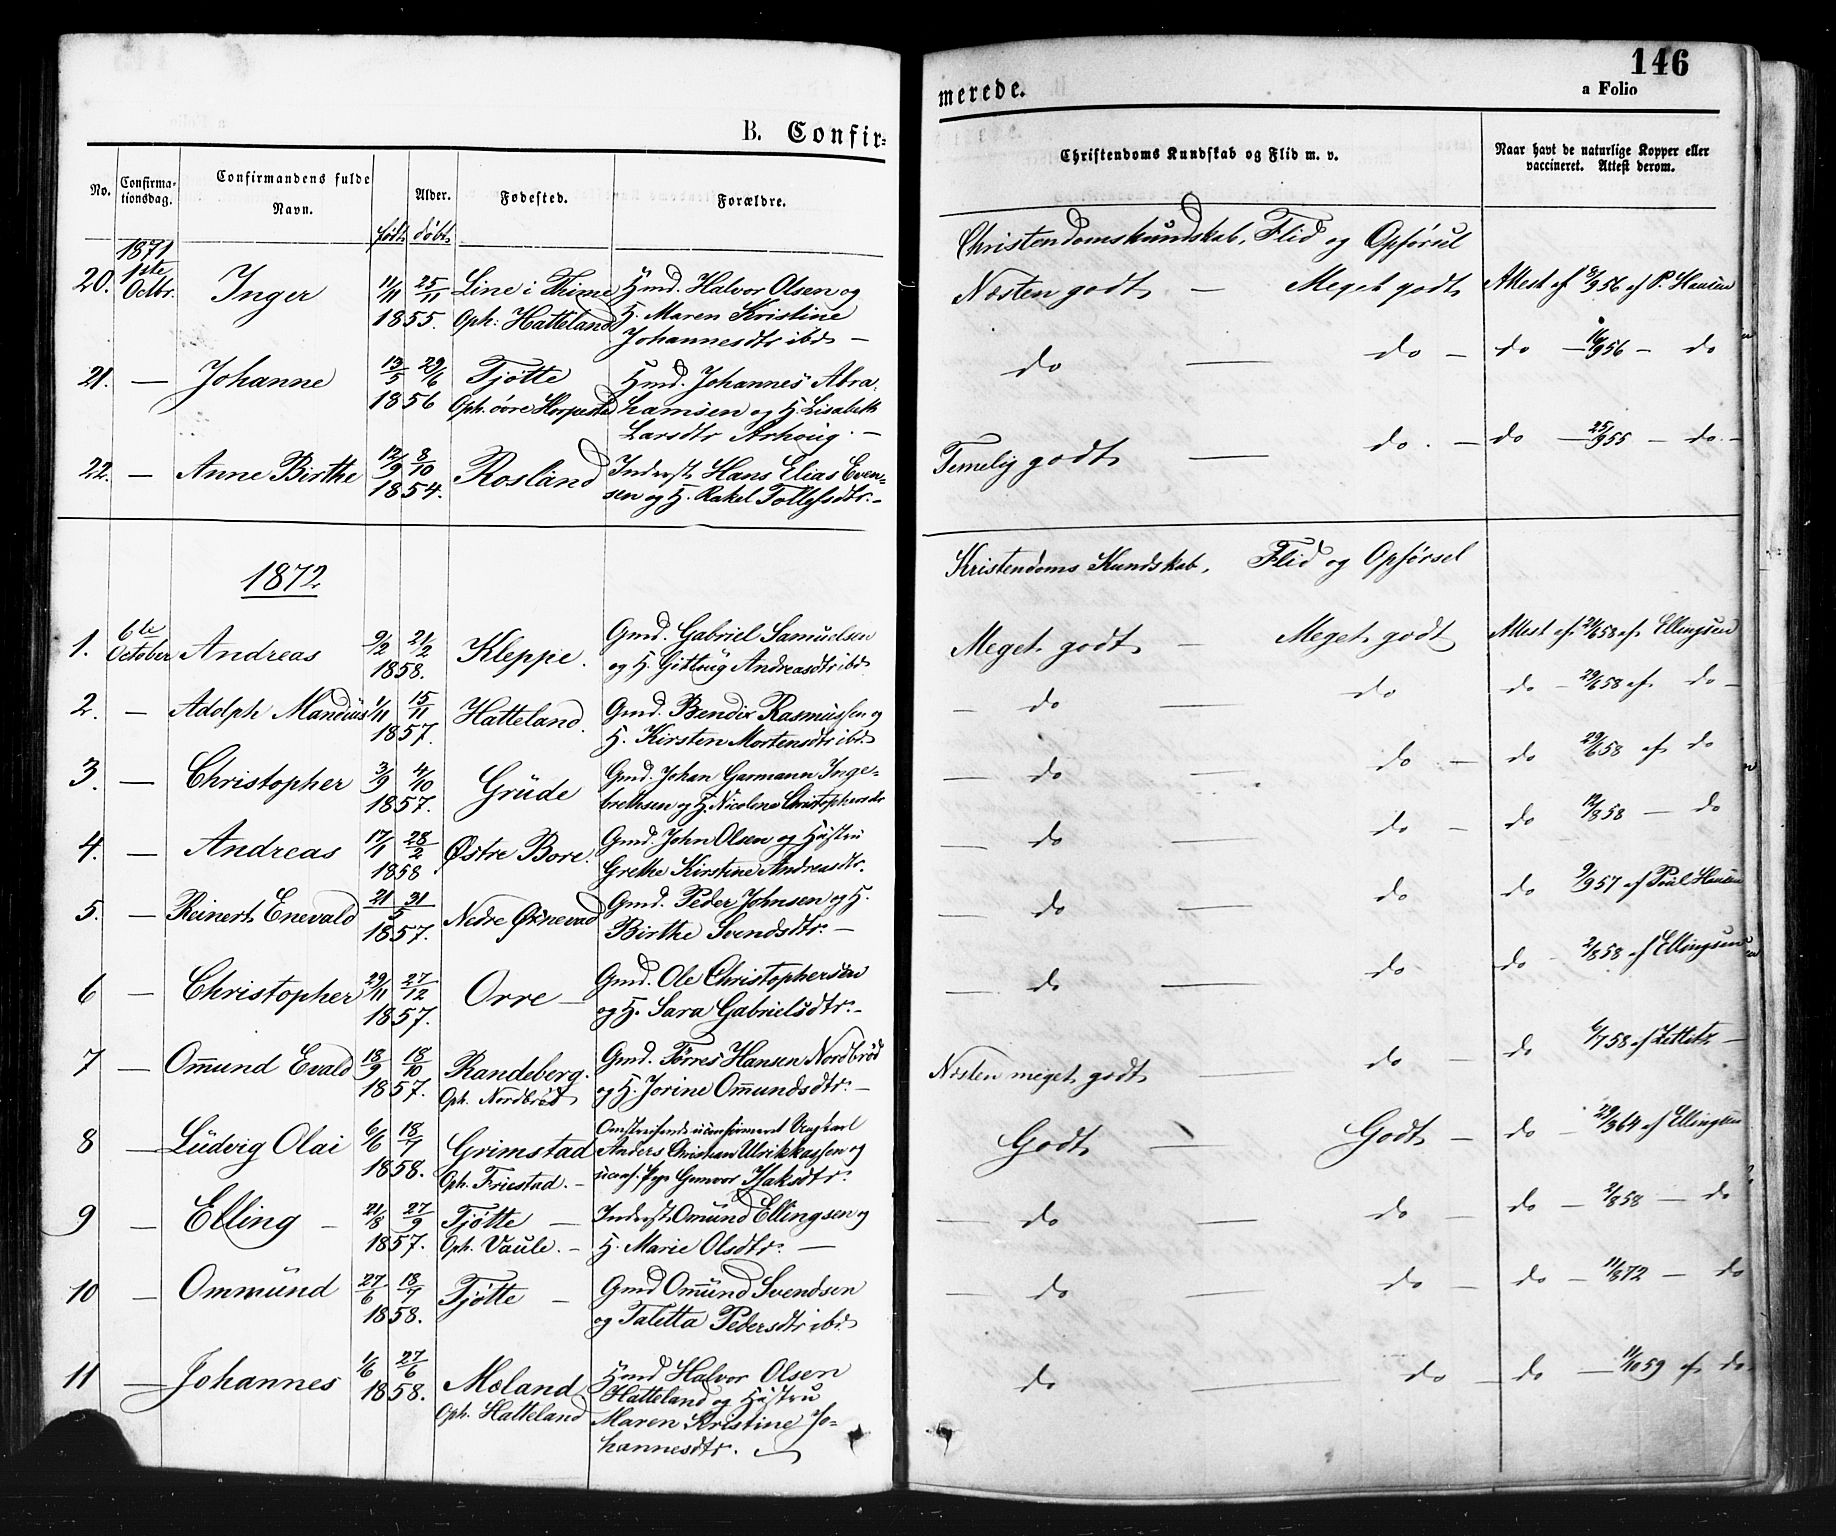 B. Confir-
No.
Confirma-
tionsdag.
Confirmandens fulde
Navn.
Alder.
født døbt
Fødested.
Forældre.
1871
20. 1ste Octbr. Inger 11/11 25/11 1855. Line i Thime Oph: Hatteland
Hmd. Halvor Olsen og
H. Maren Kristine
Johannesdtr ibd —
21. — Johanne 13/5 29/6 1856 Tjøtte
Hmd. Johannes Abra-
hamsen og H. Lisabeth
Larsdtr
22. — Anne Birthe 12/9 8/10 1854. Rosland
Inderst Hans Elias Even-
sen og H. Rakel Tollefsdtr. —
1872
1. 6te October Andreas 9/2 21/2 1858. Kleppe.
Gmd. Gabriel Samuelsen
og H. Andreasdtr ibd
2. — Adolph Mandius 1/11 15/11 1857. Hatteland.
Gmd. Bendix Rasmussen og
H. Kirsten Mortensdtr ibd.
3. — Christopher 3/9 4/10 1857. Grude
Gmd. Johan Garmann Inge-
brethsen og H. Nicoline Christophersdtr
4. — Andreas 17/1 28/2 1858 Østre Bore.
Gmd. John Olsen og Hustru
Grethe Kirstine Andreasdtr.
5. — Reinert Enevald 21/5 31/5 1857. Nedre Øxnevad
Gmd. Peder Johnsen og H.
Birthe Svendsdtr. —
6 — Christopher 29/11 27/12 1857. Orre —
Gmd. Ole Christophersen
og H. Sara Gabrielsdtr. —
7 — Ommund Evald 18/9 18/10 1857. Randeberg. Oph. Nordbrød
Gmd. Tørres Hansen Nordbrød
og H. Jorine Ommundsdtr. —
8 — Ludvig Olai 6/6 18/7 1858. Grimstad Oph. Friestad. —
Omstreifende uconfirmeret Ungkarl
Anders Christian Ulrikkassen og
uconf. Pige Gunvor Isaksdtr.
9 — Elling — 21/8 27/9 1857. Tjøtte — Oph. Vaule. —
Inderst Omund Ellingsen og
H. Marie Olsdtr. —
10 — Ommund 27/6 18/7 1858. Tjøtte —
Gmd Omund Svendsen
og Taletta Pedersdtr ibd
11 — Johannes 1/6 27/6 1858. Mæland Oph. Hatteland
Hmd Halvor Olsen
Hatteland og Hustru
Maren Kristine Jo-
hannesdtr. —
146
merede.
a Folio
Christendoms Kundskab og Flid m. v.
Naar havt de naturlige Kopper eller
vaccineret. Attest derom.
Christendomskundskab, Flid og Opførsel
Næsten godt — Meget godt Attest af 8/9 56 af P. Hansen
do — do — do — 16/9 56 — do
Temelig godt — do. — do — 25/9 55 — do. —
Kristendoms Kundskab, Flid og Opførsel
Meget godt — Meget godt Attest af 21/6 58 af Ellingsen
— do — do do — 29/6 58 af do —
— do — do — do 29/6 58 af do
— do — do — do 12/8 58 — do
— do — do do 9/9 57 af Poul Hansen
— do — do do — 2/8 58 af Ellingsen
Næsten meget godt — do — do 6/7 58 af —
Godt — Godt — do — 29/3 64 af Ellingsen
— do — do — do — 2/8 58 — do
— do — do — do — 11/6 72 — do
do — do — do — 11/10 59 af do